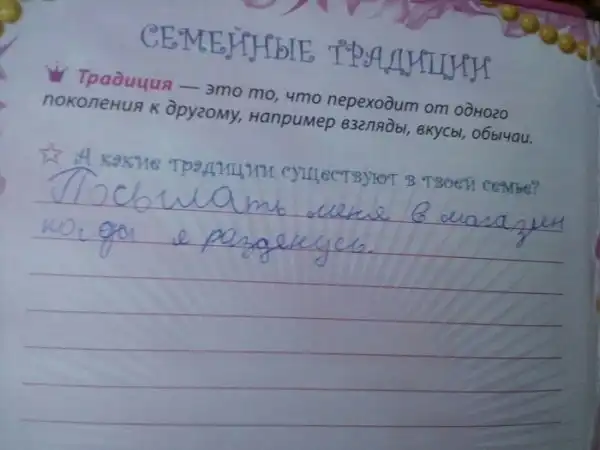 СЕМЕЙНЫЕ ТРАДИЦИИ
Традиция — это то, что переходит от одного
поколения к другому, например взгляды, вкусы, обычаи.
А какие традиции существуют в твоей семье?
Посылать меня в магазин
когды я разденусь.